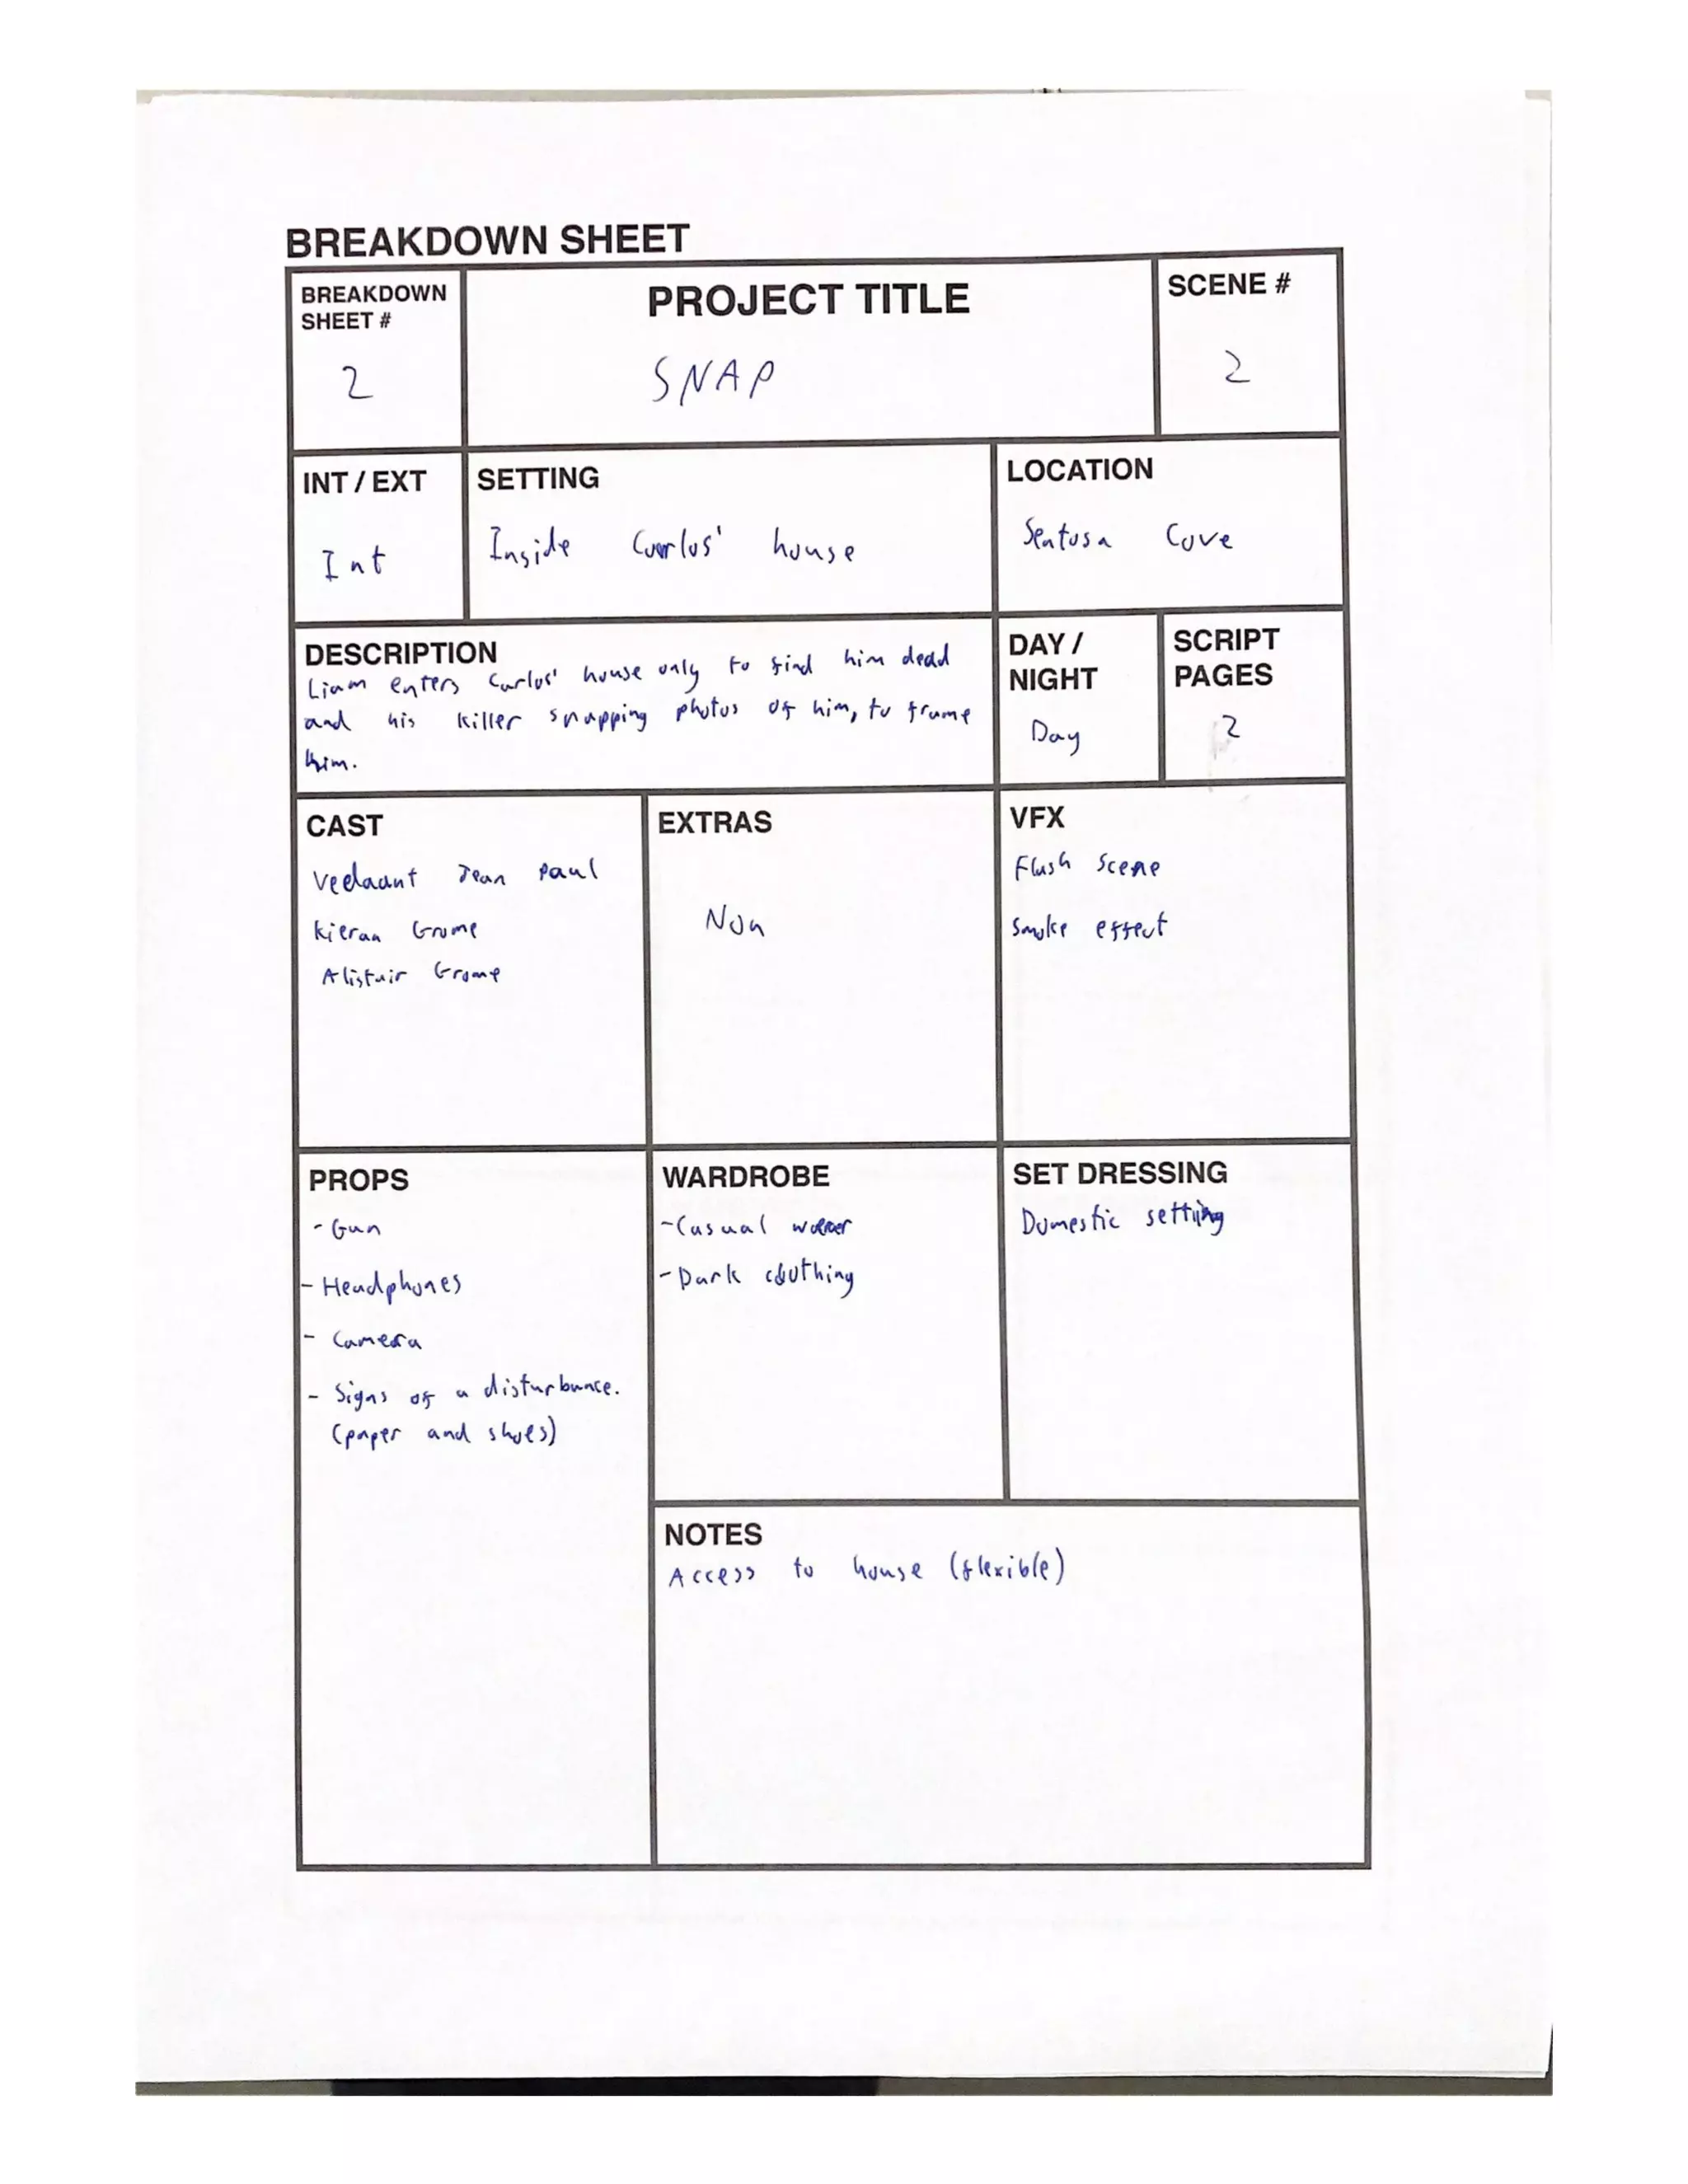 BREAKDOWN SHEET
BREAKDOWN
SHEET #
2
PROJECT TITLE
SNAP
SCENE #
2
INT / EXT
Int
SETTING
Inside Carlos' house
LOCATION
Sentosa Cove
DESCRIPTION
Liam enters Carlos' house only to find him dead
and his killer snapping photos of him, to frame
him.
DAY /
NIGHT
Day
SCRIPT
PAGES
2
CAST
Vedaant Jean Paul
Kieran Grome
Alistair Grome
EXTRAS
Non
VFX
Flash Scene
Smoke effect
PROPS
- Gun
- Headphones
- Camera
- Signs of a disturbance.
(paper and shoes)
WARDROBE
- Casual wear
- Dark clothing
SET DRESSING
Domestic setting
NOTES
Access to house (flexible)